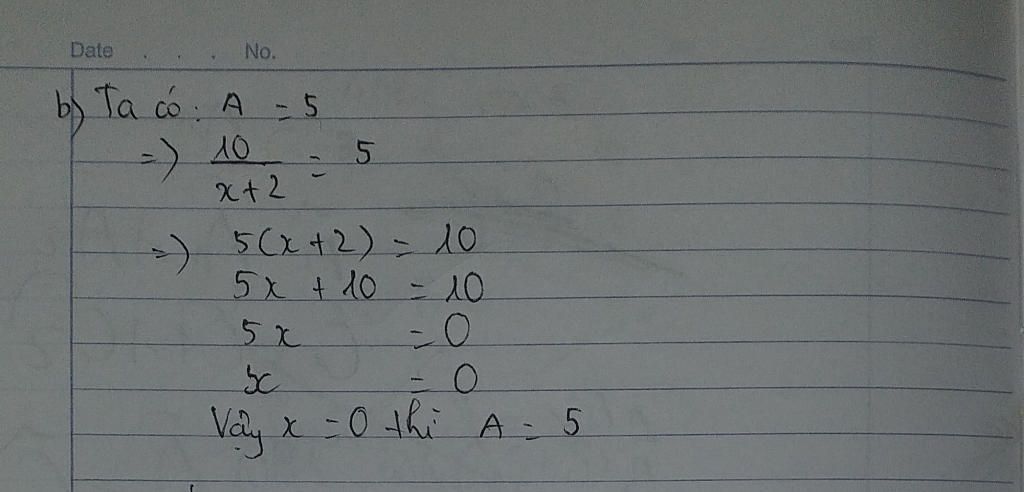 Date . . . No.
b) Ta có: A = 5
=) 10/(x+2) = 5
=) 5(x+2) = 10
5x + 10 = 10
5x = 0
x = 0
Vậy x = 0 thì A = 5